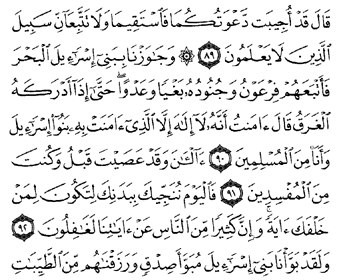 قَالَ قَدْ أُجِيبَت دَّعْوَتُكُمَا فَٱسْتَقِيمَا وَلَا تَتَّبِعَآنِّ سَبِيلَ
ٱلَّذِينَ لَا يَعْلَمُونَ ٨٩ ۞ وَجَٰوَزْنَا بِبَنِىٓ إِسْرَٰٓءِيلَ ٱلْبَحْرَ
فَأَتْبَعَهُمْ فِرْعَوْنُ وَجُنُودُهُۥ بَغْيًا وَعَدْوًا ۖ حَتَّىٰٓ إِذَآ أَدْرَكَهُ
ٱلْغَرَقُ قَالَ ءَامَنتُ أَنَّهُۥ لَآ إِلَٰهَ إِلَّا ٱلَّذِىٓ ءَامَنَتْ بِهِۦ بَنُوٓا۟ إِسْرَٰٓءِيلَ
وَأَنَا۠ مِنَ ٱلْمُسْلِمِينَ ٩٠ ءَآلْـَٰٔنَ وَقَدْ عَصَيْتَ قَبْلُ وَكُنتَ
مِنَ ٱلْمُفْسِدِينَ ٩١ فَٱلْيَوْمَ نُنَجِّيكَ بِبَدَنِكَ لِتَكُونَ لِمَنْ
خَلْفَكَ ءَايَةً ۚ وَإِنَّ كَثِيرًا مِّنَ ٱلنَّاسِ عَنْ ءَايَٰتِنَا لَغَٰفِلُونَ ٩٢
وَلَقَدْ بَوَّأْنَا بَنِىٓ إِسْرَٰٓءِيلَ مُبَوَّأَ صِدْقٍ وَرَزَقْنَٰهُم مِّنَ ٱلطَّيِّبَٰتِ